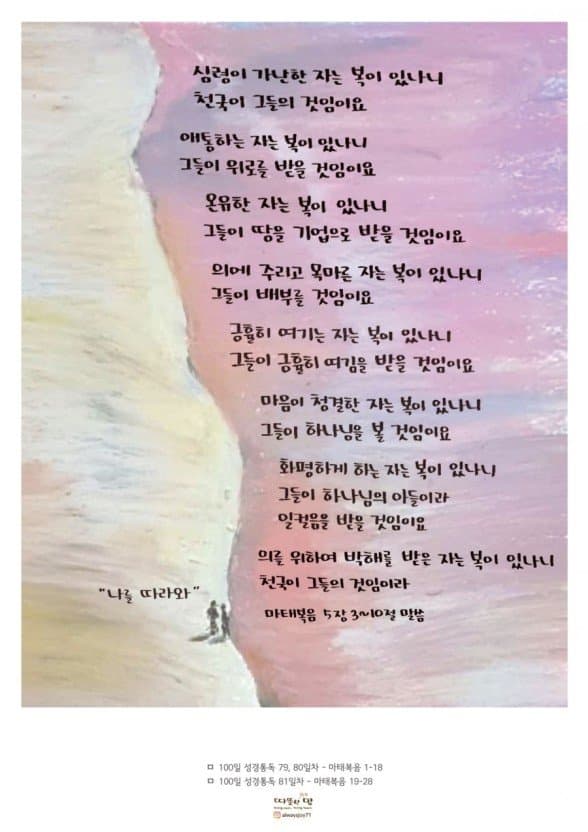 심령이 가난한 자는 복이 있나니
천국이 그들의 것임이요
애통하는 자는 복이 있나니
그들이 위로를 받을 것임이요
온유한 자는 복이 있나니
그들이 땅을 기업으로 받을 것임이요
의에 주리고 목마른 자는 복이 있나니
그들이 배부를 것임이요
긍휼히 여기는 자는 복이 있나니
그들이 긍휼히 여김을 받을 것임이요
마음이 청결한 자는 복이 있나니
그들이 하나님을 볼 것임이요
화평하게 하는 자는 복이 있나니
그들이 하나님의 아들이라
일컬음을 받을 것임이요
의를 위하여 박해를 받은 자는 복이 있나니
천국이 그들의 것임이라
"나를 따라와"
마태복음 5장 3~10절 말씀
□ 100일 성경통독 79, 80일차 - 마태복음 1-18
□ 100일 성경통독 81일차 - 마태복음 19-28
따뜻한
alwaysjoy71